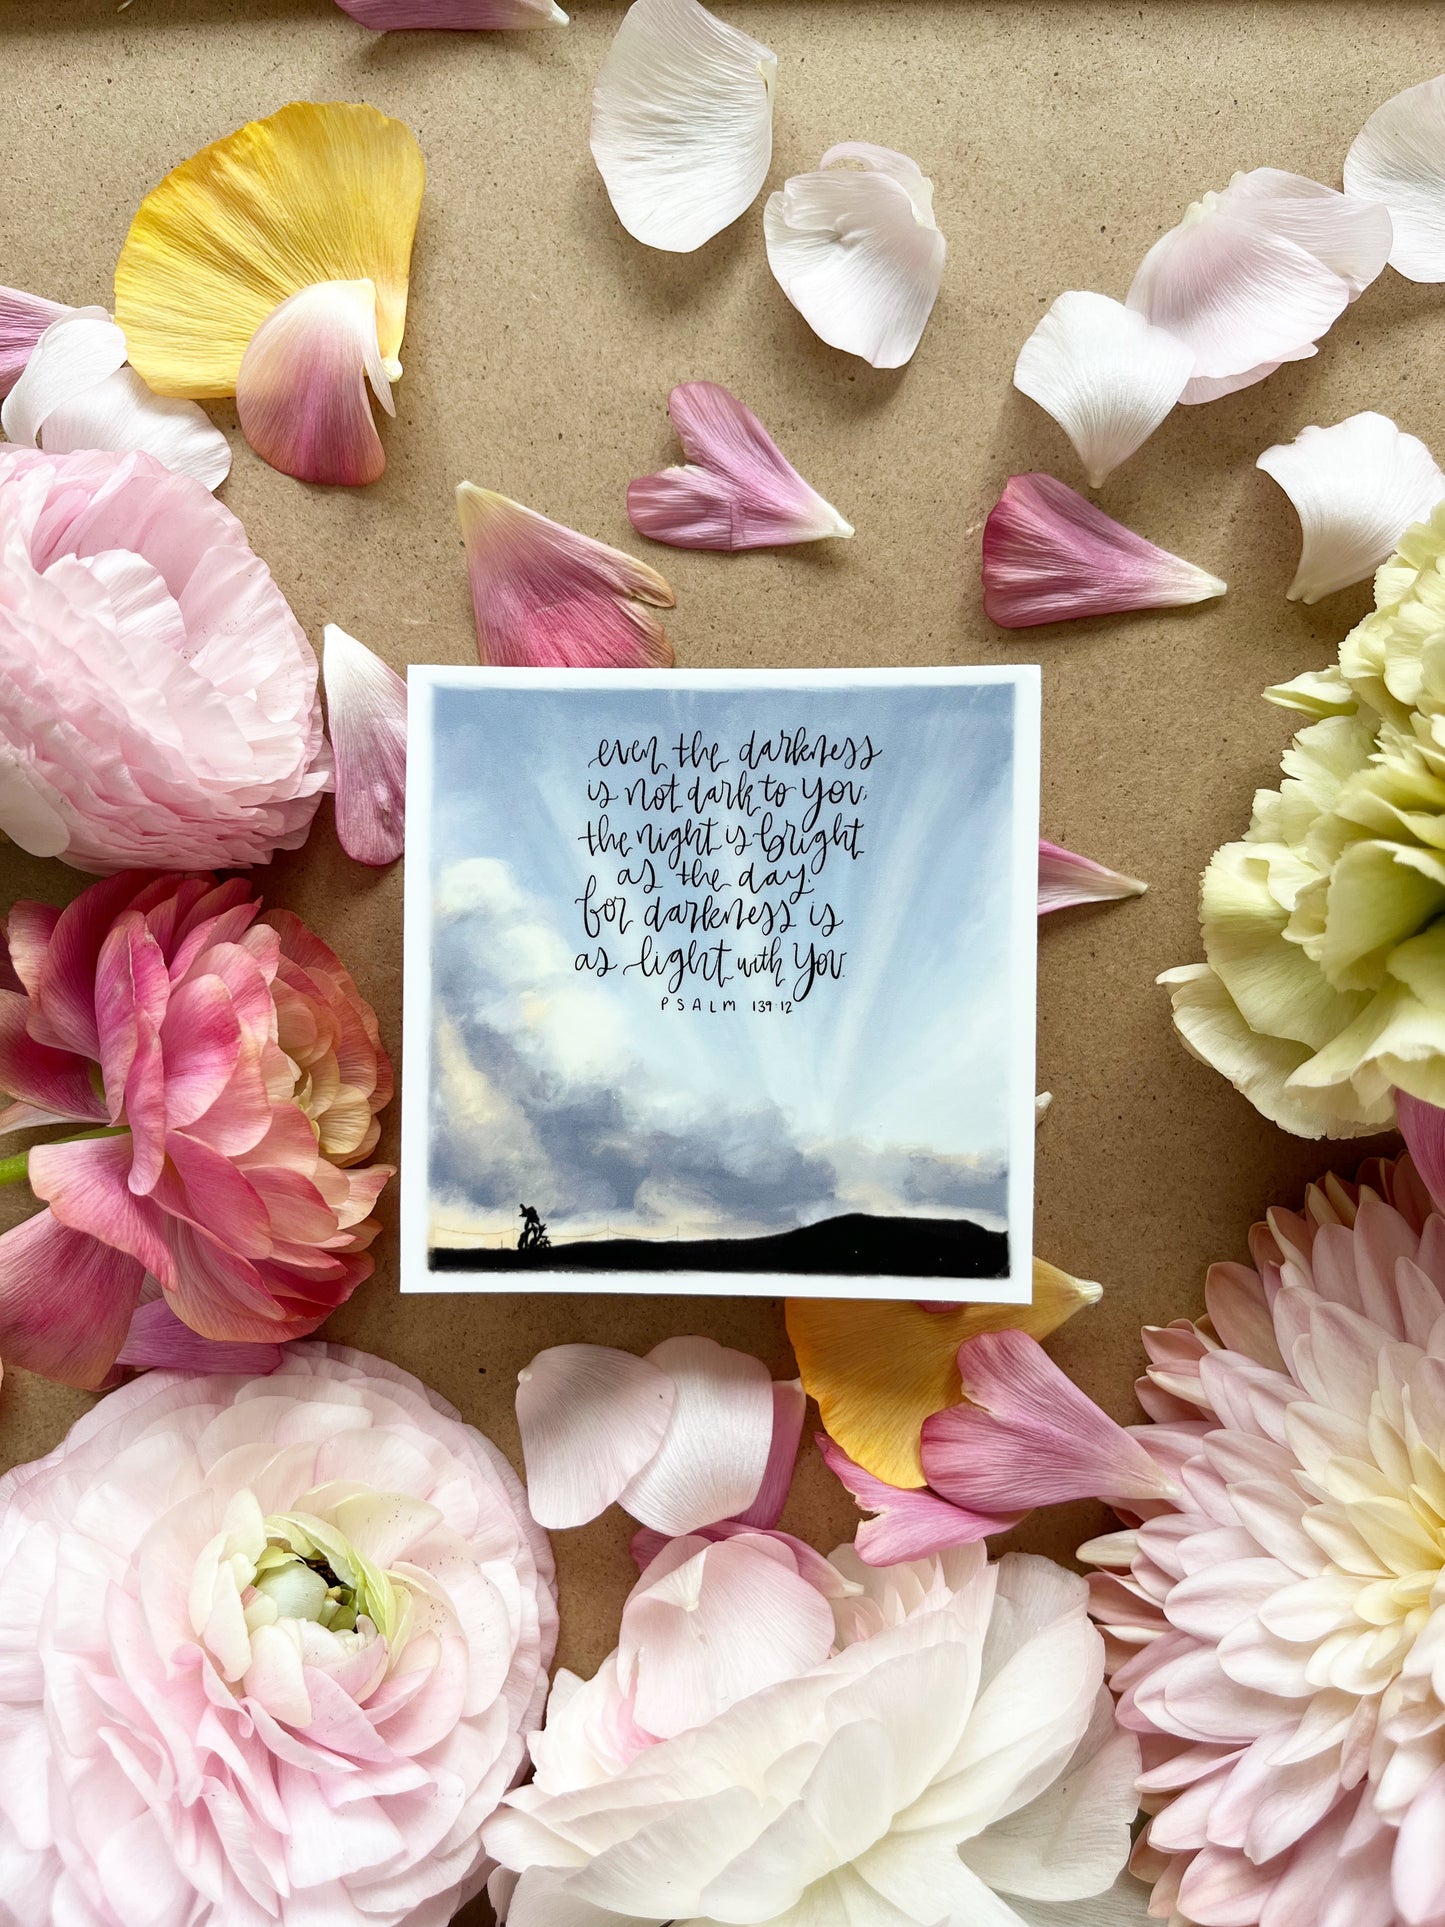 even the darkness
is not dark to You;
the night is bright
as the day,
for darkness is
as light with You.
PSALM 139:12